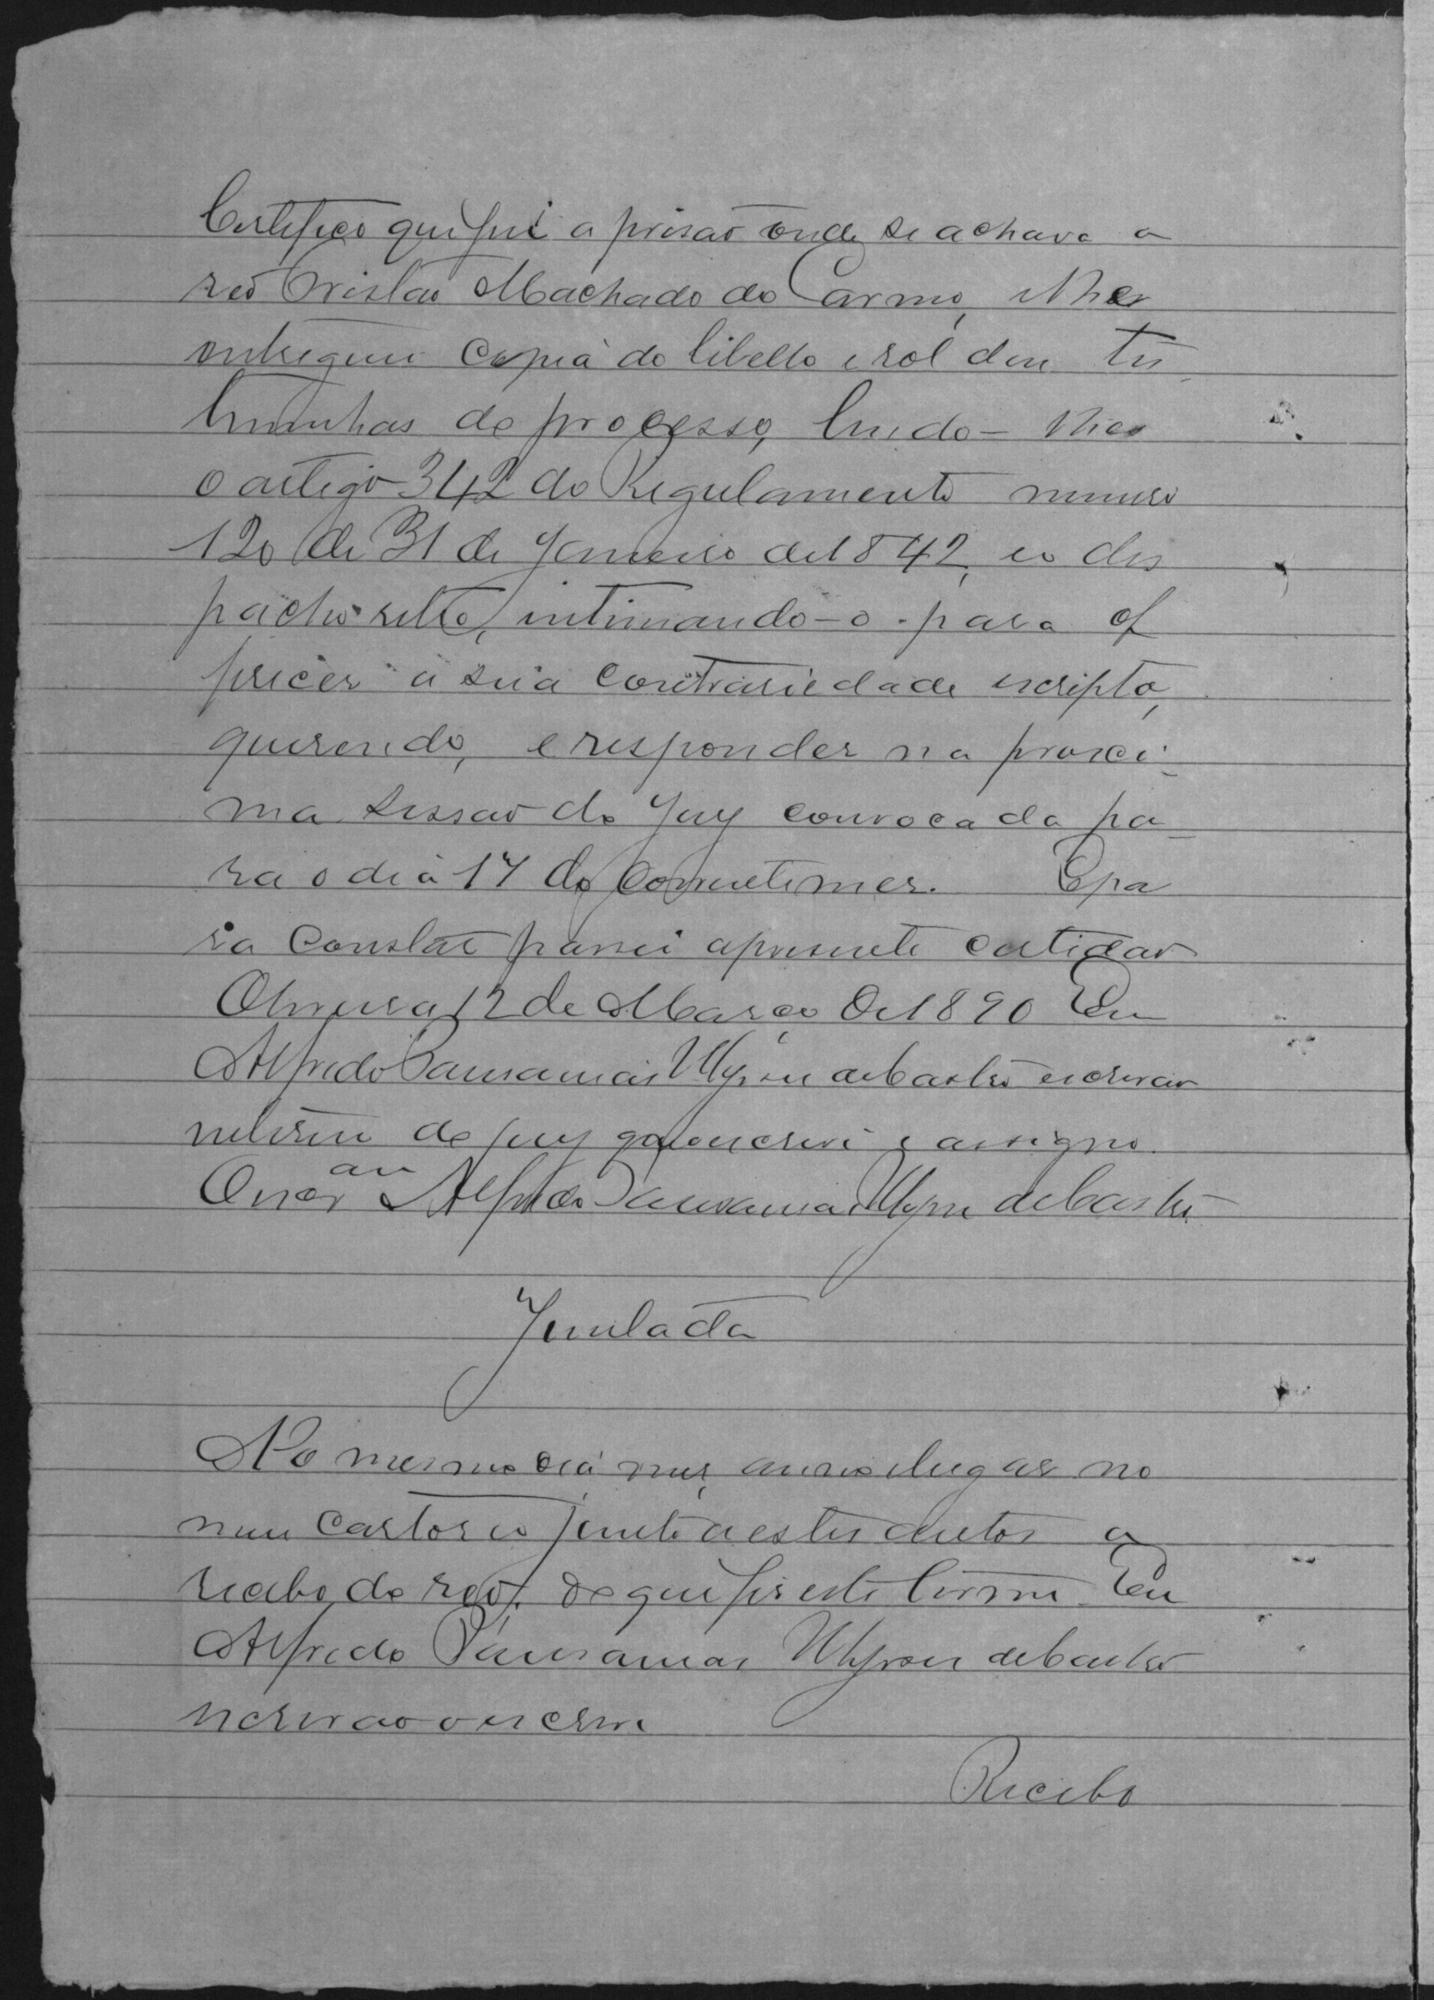 Certifico que fui a prisão onde se achava o
reo Tristão Machado do Carmo, e lhe
entreguei copia do libello e rol das tes
temunhas do processo, lendo-lhe
o artigo 342 do Regulamento numero
120 de 31 de Janeiro de 1842, e o des
pacho retro, intimando-o para of
ferecer a sua contrariedade escripta,
querendo, e responder na proxi-
ma sessão do Jury convocada pa-
ra o dia 17 do corrente mez. E pa
ra constar passei a presente certidão
12 de Março de 1890 Eu
Alfredo Pausanias de Castro escrivão
interino do jury que o escrevi e assigno.
O escrivão Alfredo Pausanias de Castro
Juntada
No mesmo dia mez, anno e lugar no
meu cartorio junto a estes autos o
recibo do reo; do que fiz este termo. Eu
Alfredo Pausanias de Castro
escrivão o escrevi
Recibo